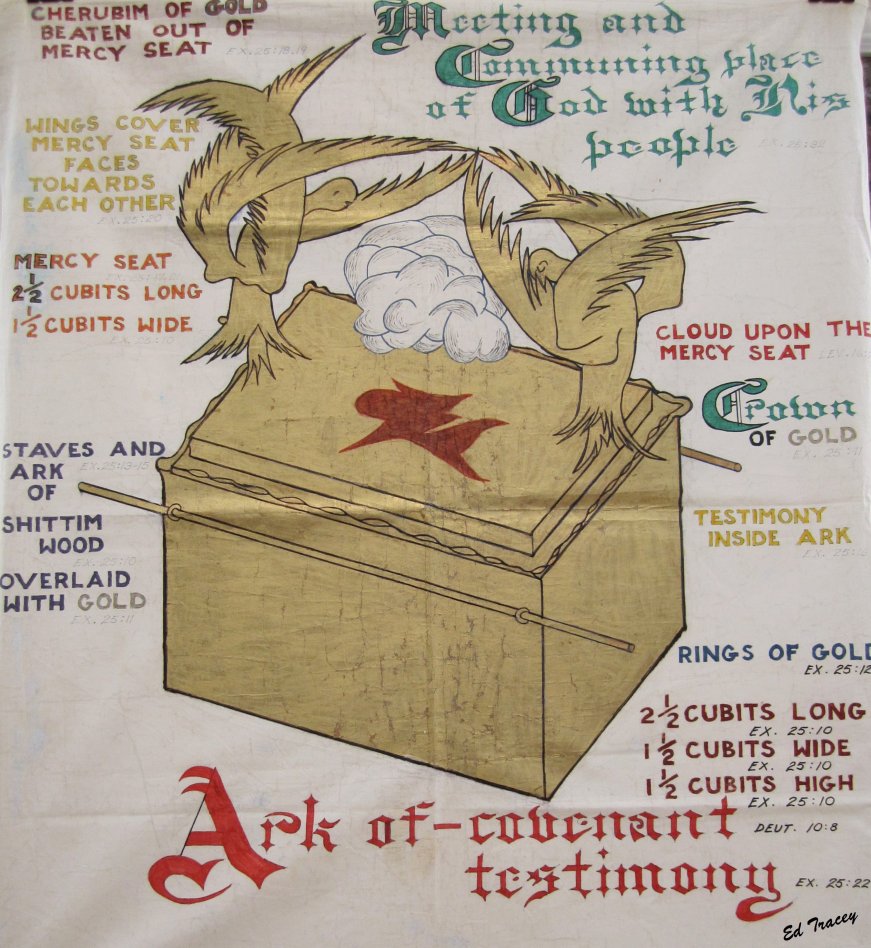 CHERUBIM OF GOLD
BEATEN OUT OF
MERCY SEAT EX. 25:18.19
Meeting and
Communing place
of God with His
people EX. 25:22
WINGS COVER
MERCY SEAT
FACES
TOWARDS
EACH OTHER
EX. 25:20
MERCY SEAT
2 1/2 CUBITS LONG
1 1/2 CUBITS WIDE
CLOUD UPON THE
MERCY SEAT
Crown
OF GOLD
EX. 25:11
STAVES AND
ARK EX. 25:13-15
OF
SHITTIM
WOOD
EX. 25:10
OVERLAID
WITH GOLD
EX. 25:11
TESTIMONY
INSIDE ARK
EX. 25:16
RINGS OF GOLD
EX. 25:12
2 1/2 CUBITS LONG
EX. 25:10
1 1/2 CUBITS WIDE
EX. 25:10
1 1/2 CUBITS HIGH
EX. 25:10
Ark of-covenant DEUT. 10:8
testimony EX. 25:22
Ed Tracey